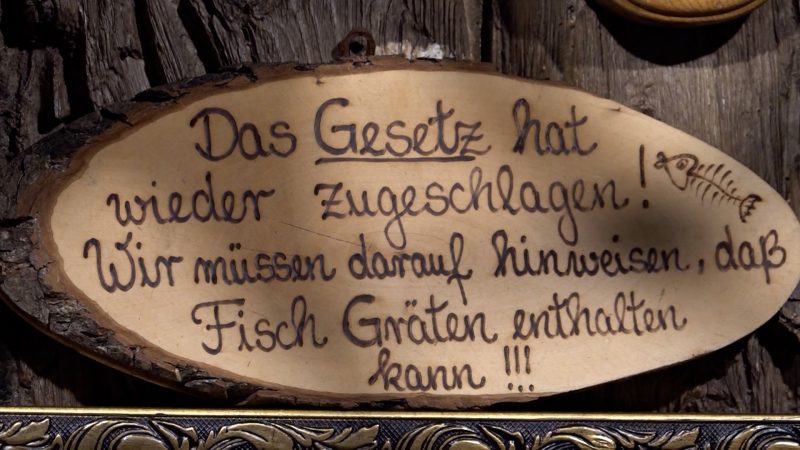 Das Gesetz hat
wieder zugeschlagen!
Wir müssen darauf hinweisen, daß
Fisch Gräten enthalten
kann !!!